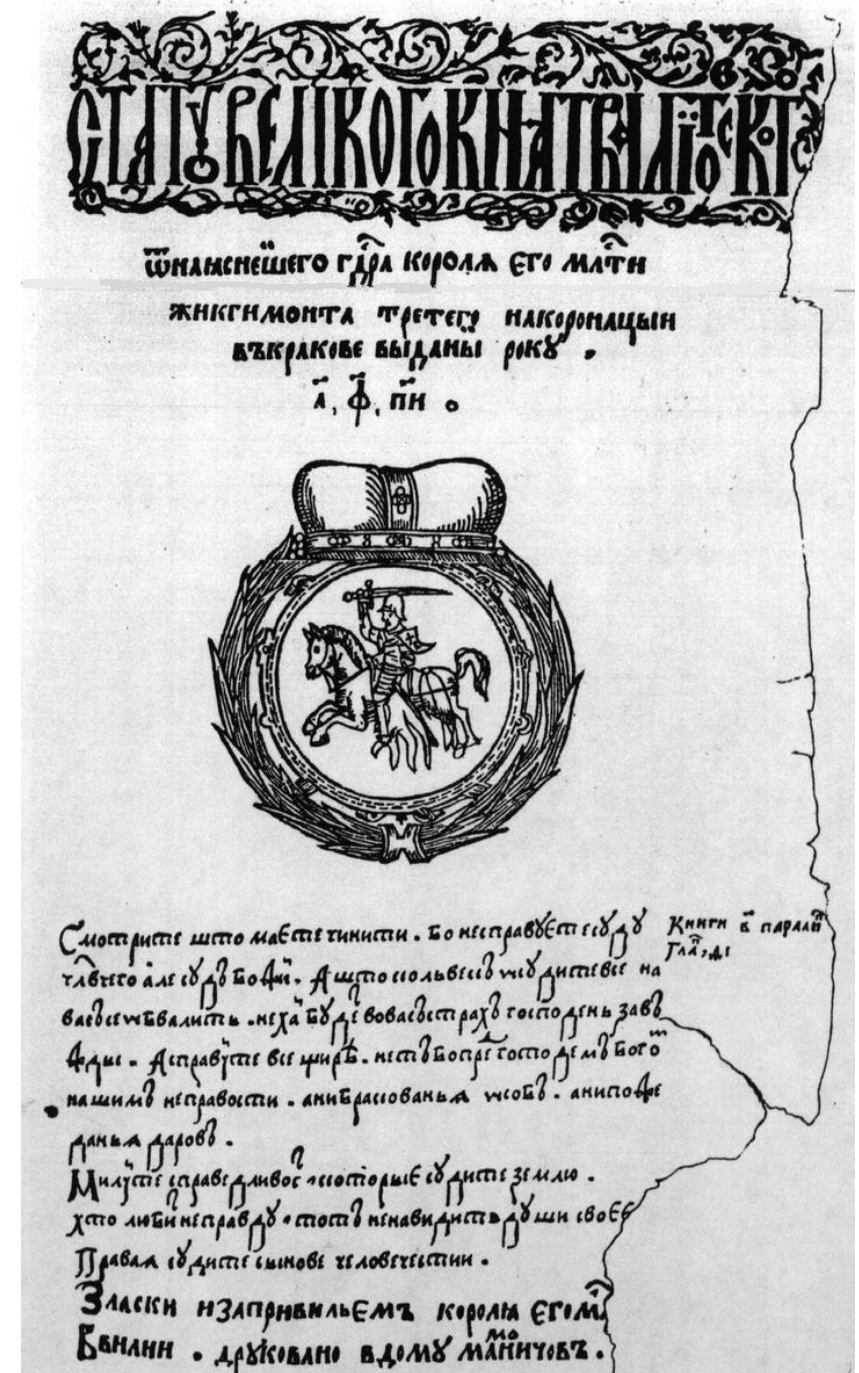 СТАТУ ВЕЛИКОГО КНЗТВА ЛІТОВСКОГО
ѿ наꙗснейшего гдⷭ҇рѧ королѧ его млⷭ҇ти
жикгимонта третего накоронацыи
въкракове выданы року .
҂а҃. ф҃. пи҃
Смотрите што маєте чинити . Бо несправуєте суду
члв҃чего але судъ Бож҃ий. А што кольвекъ ѡсудите все на
васъ сѧ ѡбвалить . нехай будеⷮ вовасъ страхъ господень завъ
жды . А справуйте все щире . нестъ бо преⷣ господемъ богоⷨ
нашимъ неправости . анибракованьѧ ѡсобъ . анипожеⷧ
даньѧ даровъ .
Милуйте справедливосⷮ которыє судите землю .
хто любиⷮ неправду тотъ ненавидитъ души своєє
Праваѧ судите сынове человечестии .
Зласки изапривильємъ королѧ єгомⷧ
Ввилни . друковано вдому мамоничовъ .
Книги в҃ паралиⷫ
Глаⷡ, ѳі